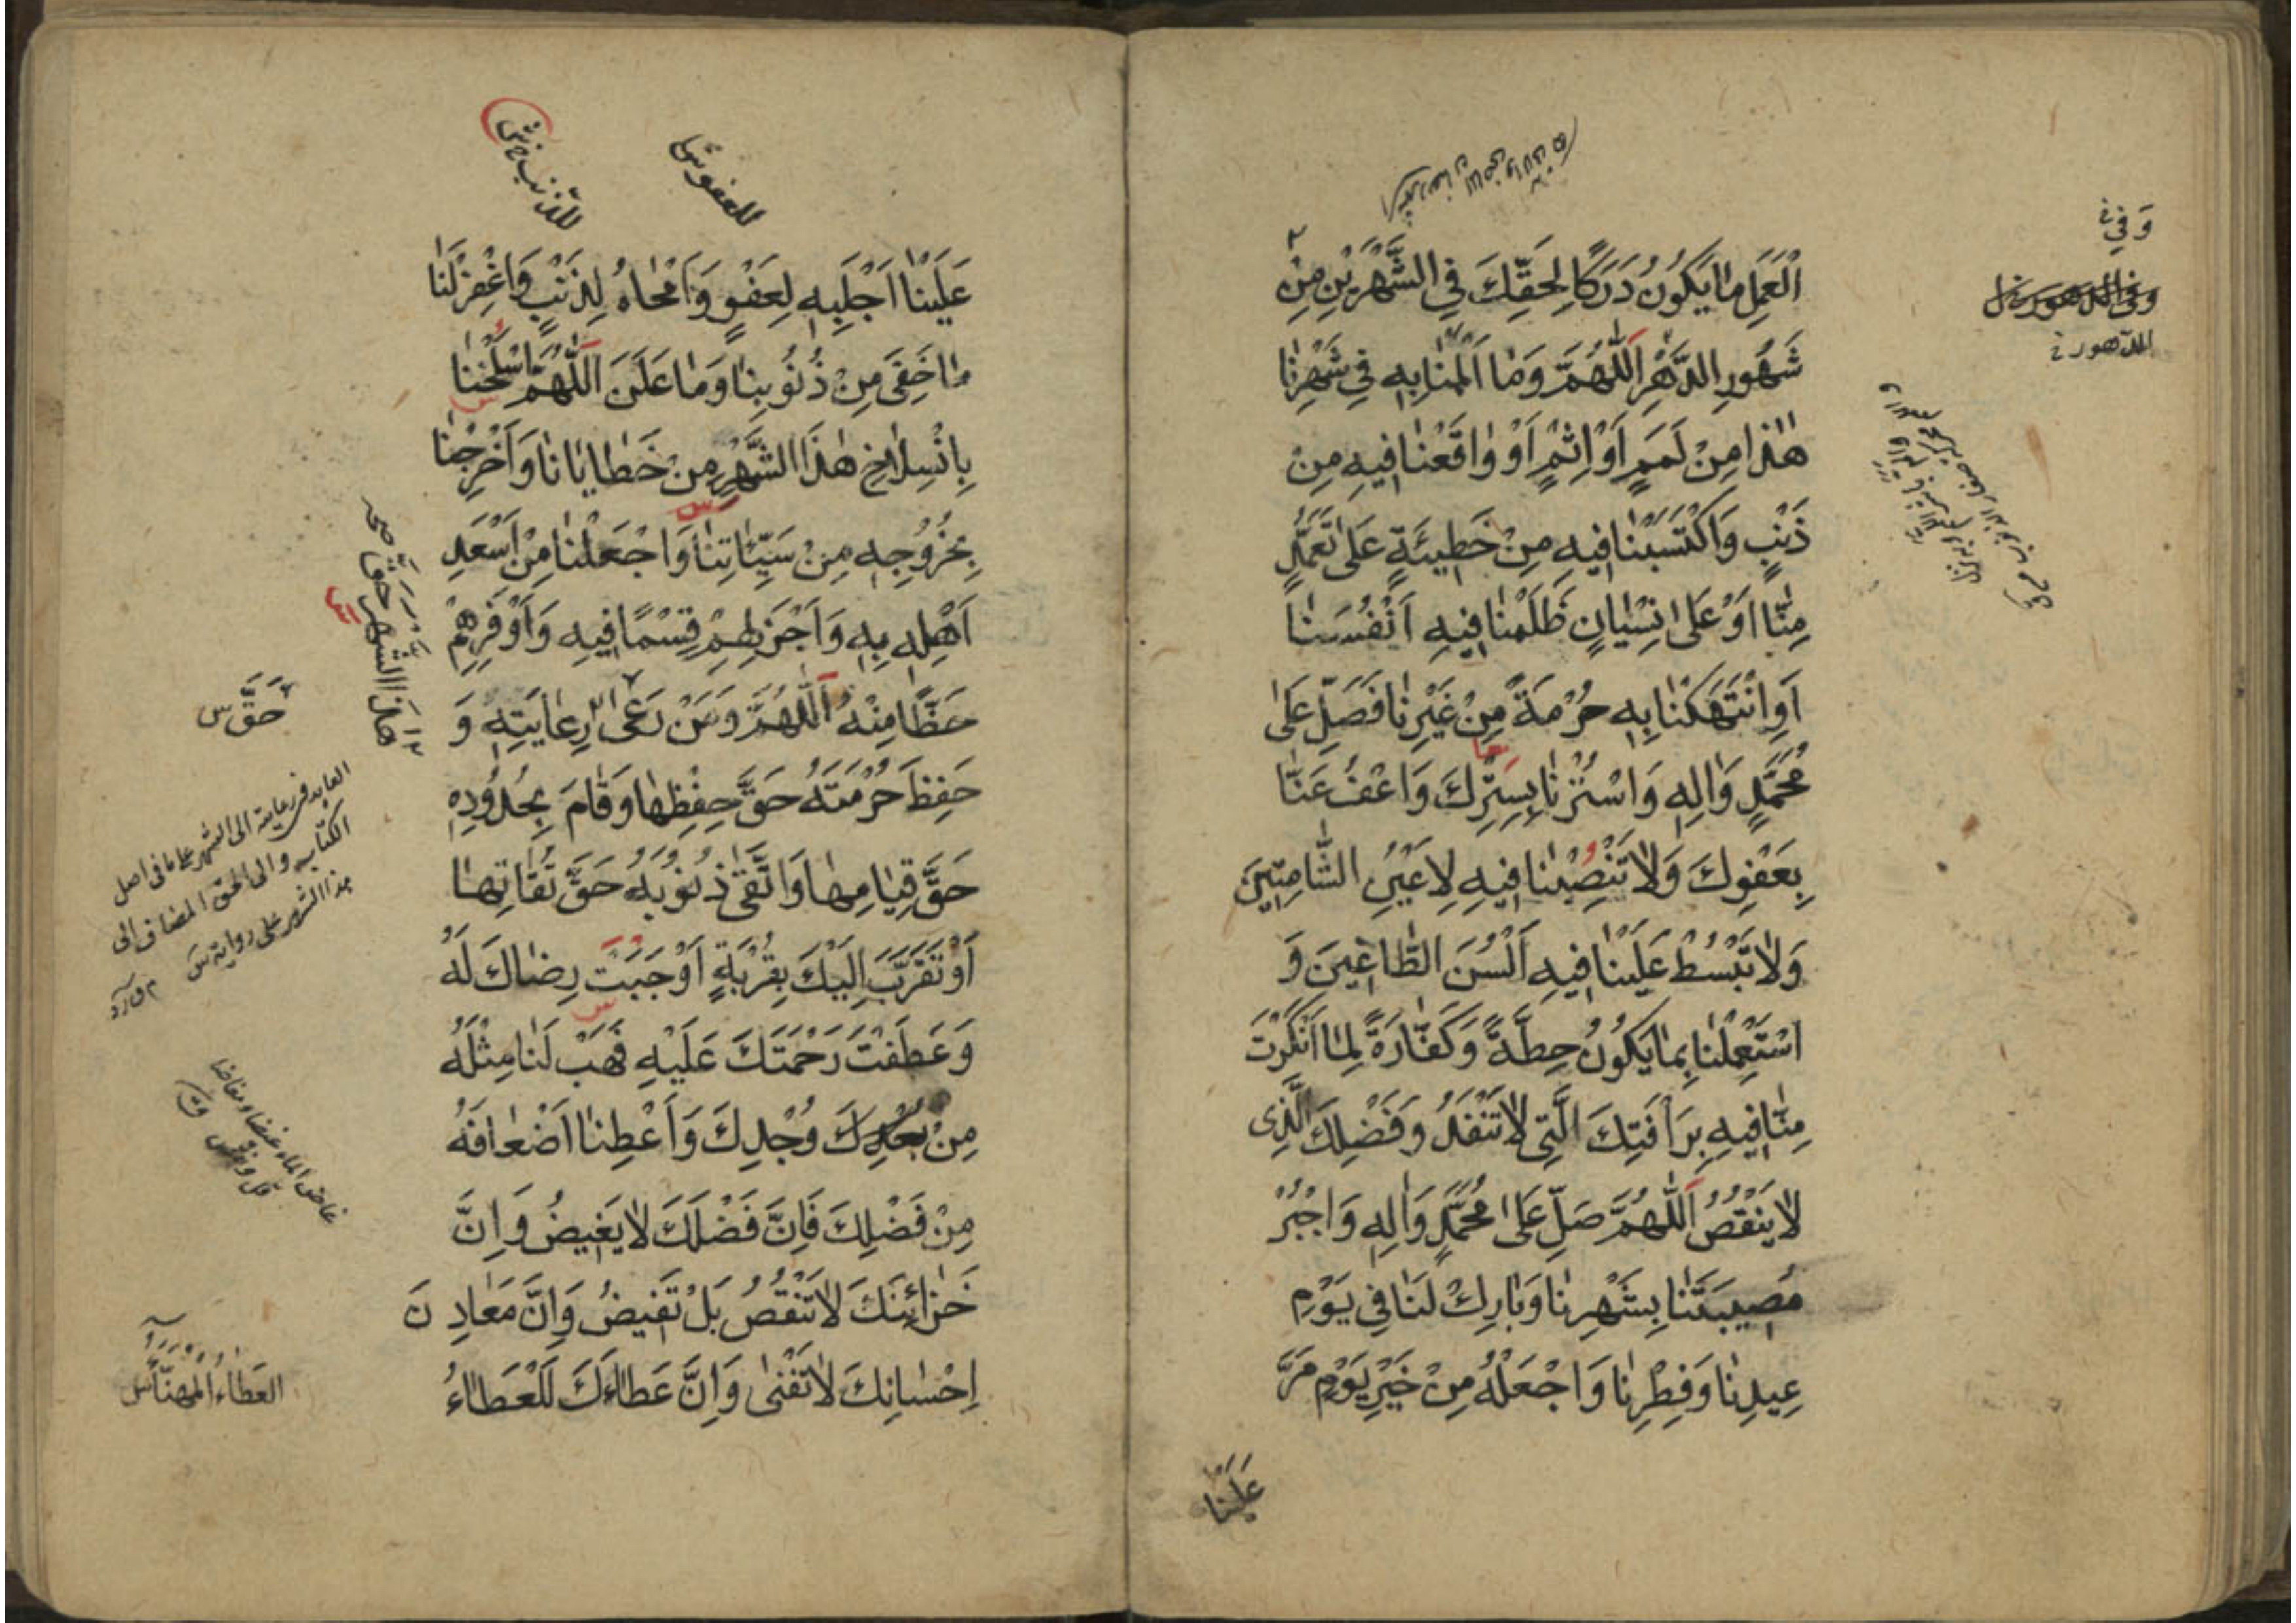 وَفِي خ
الدّهور خ
الْعَمَلِ مَا يَكُونُ دَرَكًا لِحَقِّكَ فِي الشَّهْرَيْنِ مِنْ
شُهُورِ الدَّهْرِ اَللّٰهُمَّ وَمَا اَلْمَمْنَا بِهِ فِي شَهْرِنَا
هٰذَا مِنْ لَمَمٍ اَوْ اِثْمٍ اَوْ وَاقَعْنَا فِيهِ مِنْ
ذَنْبٍ وَاَكْتَسَبْنَا فِيهِ مِنْ خَطِيئَةٍ عَلٰى تَعَمُّدٍ
مِنَّا اَوْ عَلٰى نِسْيَانٍ ظَلَمْنَا فِيهِ اَنْفُسَنَا
اَوِ انْتَهَكْنَا بِهِ حُرْمَةً مِنْ غَيْرِنَا فَصَلِّ عَلٰى
مُحَمَّدٍ وَاٰلِهِ وَاسْتُرْنَا بِسِتْرِكَ وَاعْفُ عَنَّا
بِعَفْوِكَ وَلَا تَنْصِبْنَا فِيهِ لِاَعْيُنِ الشَّامِتِينَ
وَلَا تَبْسُطْ عَلَيْنَا فِيهِ اَلْسُنَ الطَّاغِينَ وَ
اسْتَعْمِلْنَا بِمَا يَكُونُ حِطَّةً وَكَفَّارَةً لِمَا اَنْكَرْتَ
مِنَّا فِيهِ بِرَأْفَتِكَ الَّتِي لَا تَنْفَدُ وَفَضْلِكَ الَّذِي
لَا يَنْقُصُ اَللّٰهُمَّ صَلِّ عَلٰى مُحَمَّدٍ وَاٰلِهِ وَاجْبُرْ
مُصِيبَتَنَا بِشَهْرِنَا وَبَارِكْ لَنَا فِي يَوْمِ
عِيدِنَا وَفِطْرِنَا وَاجْعَلْهُ مِنْ خَيْرِ يَوْمٍ مَرَّ
عَلَيْنَا
للعفو س
للذنب س
عَلَيْنَا اَجْلَبِهِ لِعَفْوٍ وَاَمْحَاهُ لِذَنْبٍ وَاغْفِرْ لَنَا
مَا خَفِيَ مِنْ ذُنُوبِنَا وَمَا عَلَنَ اَللّٰهُمَّ اسْلَخْنَا
بِانْسِلَاخِ هٰذَا الشَّهْرِ مِنْ خَطَايَانَا وَاَخْرِجْنَا
بِخُرُوجِهِ مِنْ سَيِّئَاتِنَا وَاجْعَلْنَا مِنْ اَسْعَدِ
اَهْلِهِ بِهِ وَاَجْزَلِهِمْ قِسْمًا فِيهِ وَاَوْفَرِهِمْ
حَظًّا مِنْهُ اَللّٰهُمَّ وَمَنْ رَعٰى رِعَايَتِهِ وَ
حَفِظَ حُرْمَتَهُ حَقَّ حِفْظِهَا وَقَامَ بِحُدُودِهِ
حَقَّ قِيَامِهَا وَاتَّقٰى ذُنُوبَهُ حَقَّ تُقَاتِهَا
اَوْ تَقَرَّبَ اِلَيْكَ بِقُرْبَةٍ اَوْجَبَتْ رِضَاكَ لَهُ
وَعَطَفَتْ رَحْمَتَكَ عَلَيْهِ فَهَبْ لَنَا مِثْلَهُ
مِنْ وُجْدِكَ وَاَعْطِنَا اَضْعَافَهُ
مِنْ فَضْلِكَ فَاِنَّ فَضْلَكَ لَا يَغِيضُ وَاِنَّ
خَزَائِنَكَ لَا تَنْقُصُ بَلْ تَفِيضُ وَاِنَّ مَعَادِنَ
اِحْسَانِكَ لَا تَفْنٰى وَاِنَّ عَطَاءَكَ لَلْعَطَاءُ
هذا الشهر حقّ
حَقَّ س
العايد في رعايته الى الشهر على ما في اصل
الكتاب والى الحق المضاف الى
هذا الشهر على رواية س
غاض الماء غيضا ومغاضا
قل ونقص
العَطَاءُ المُهَنَّا س